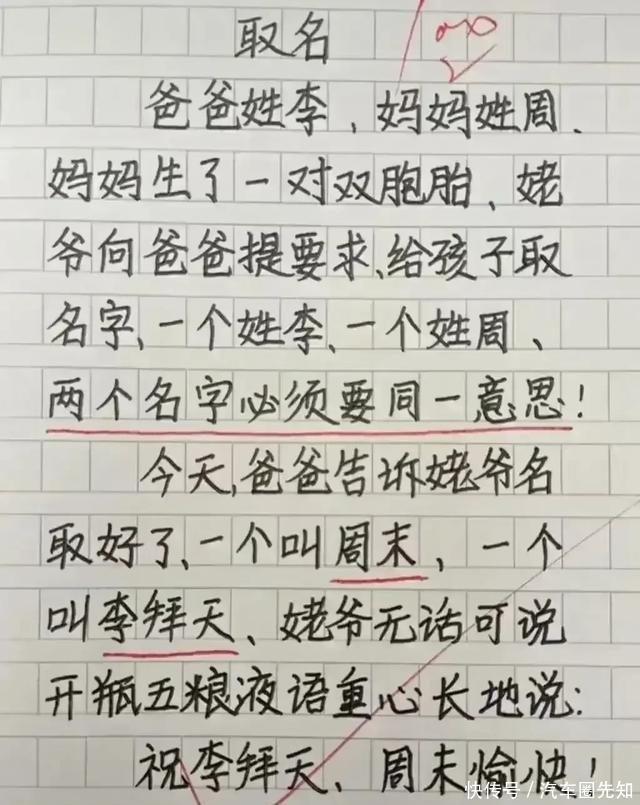 取名
爸爸姓李、妈妈姓周、
妈妈生了一对双胞胎、姥
爷向爸爸提要求、给孩子取
名字、一个姓李、一个姓周、
两个名字必须要同一意思！
今天、爸爸告诉姥爷名
取好了、一个叫周末、一个
叫李拜天、姥爷无话可说
开瓶五粮液语重心长地说:
祝李拜天、周末愉快！
快传号/汽车圈先知